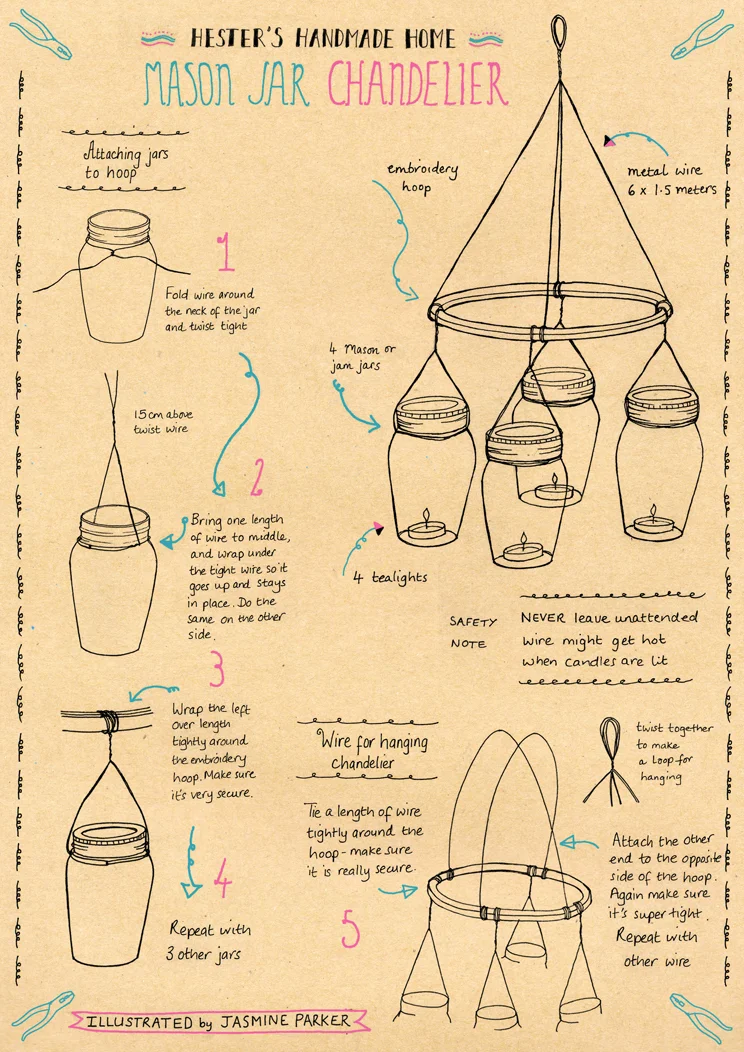 HESTER'S HANDMADE HOME
MASON JAR CHANDELIER
Attaching jars
to hoop
1
Fold wire around
the neck of the jar
and twist tight
15cm above
twist wire
2
Bring one length
of wire to middle,
and wrap under
the tight wire so it
goes up and stays
in place. Do the
same on the other
side.
3
Wrap the left
over length
tightly around
the embroidery
hoop. Make sure
it's very secure.
4
Repeat with
3 other jars
embroidery
hoop
metal wire
6 x 1.5 meters
4 Mason or
jam jars
4 tealights
SAFETY
NOTE
NEVER leave unattended
wire might get hot
when candles are lit
Wire for hanging
chandelier
Tie a length of wire
tightly around the
hoop - make sure
it is really secure.
5
twist together
to make
a Loop for
hanging
Attach the other
end to the opposite
side of the hoop.
Again make sure
it's super tight.
Repeat with
other wire
ILLUSTRATED by JASMINE PARKER